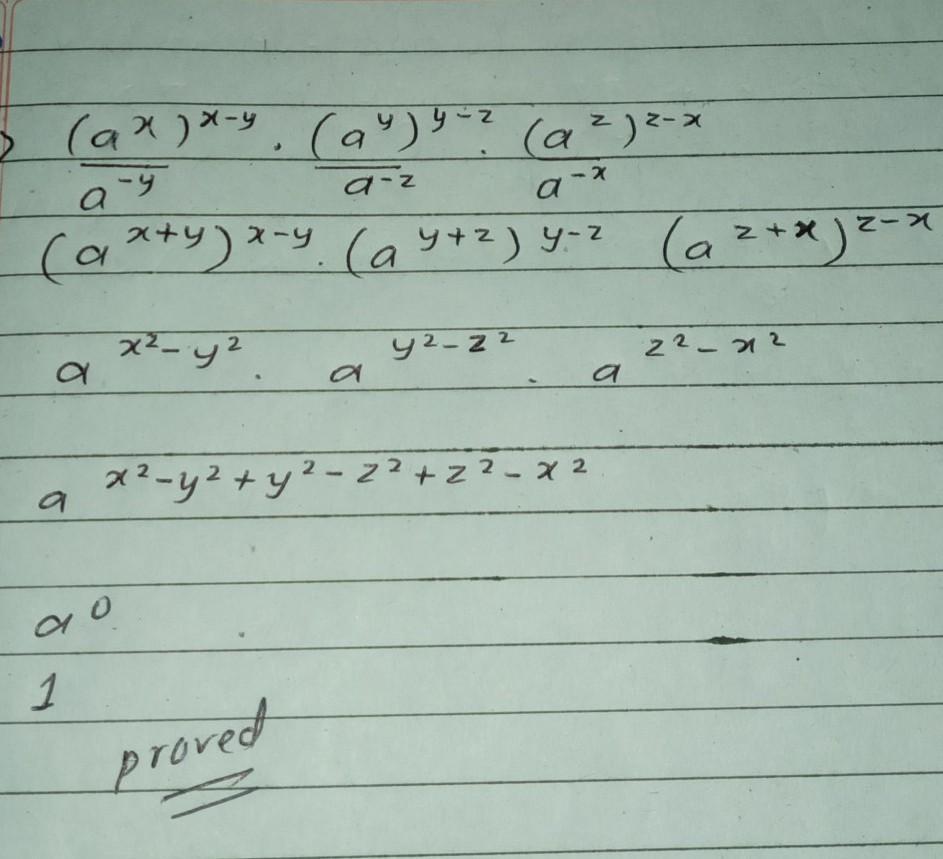 (a^x / a^-y)^x-y . (a^y / a^-z)^y-z . (a^z / a^-x)^z-x
(a^x+y)^x-y . (a^y+z)^y-z (a^z+x)^z-x
a^x²-y² . a^y²-z² . a^z²-x²
a^x²-y²+y²-z²+z²-x²
a⁰
1
proved